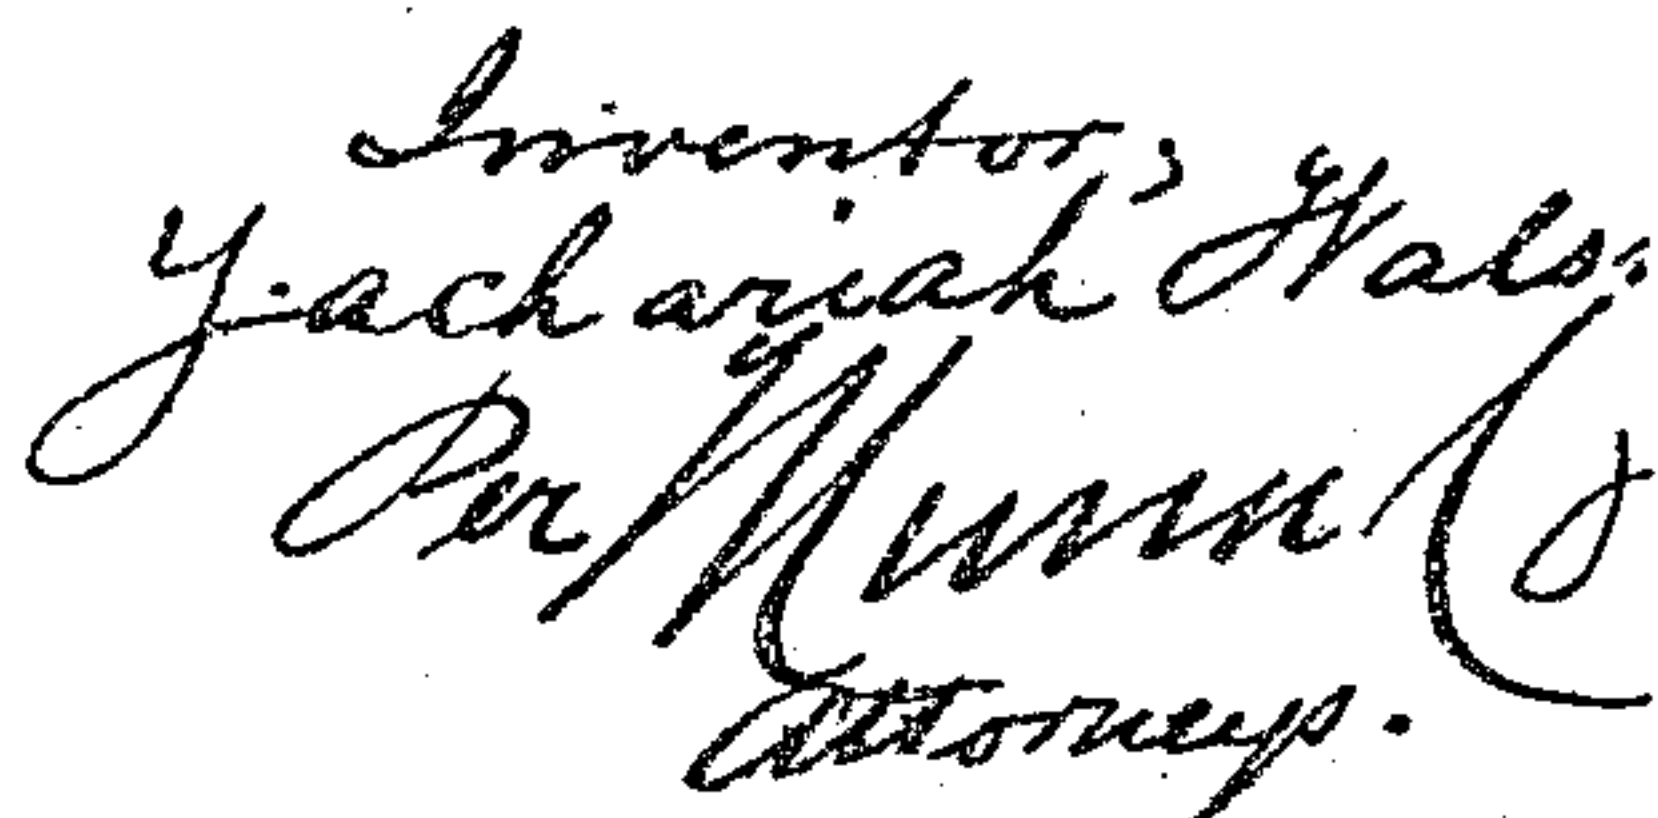 Inventor,
Zachariah Wals
Per Munn &
Attorneys.